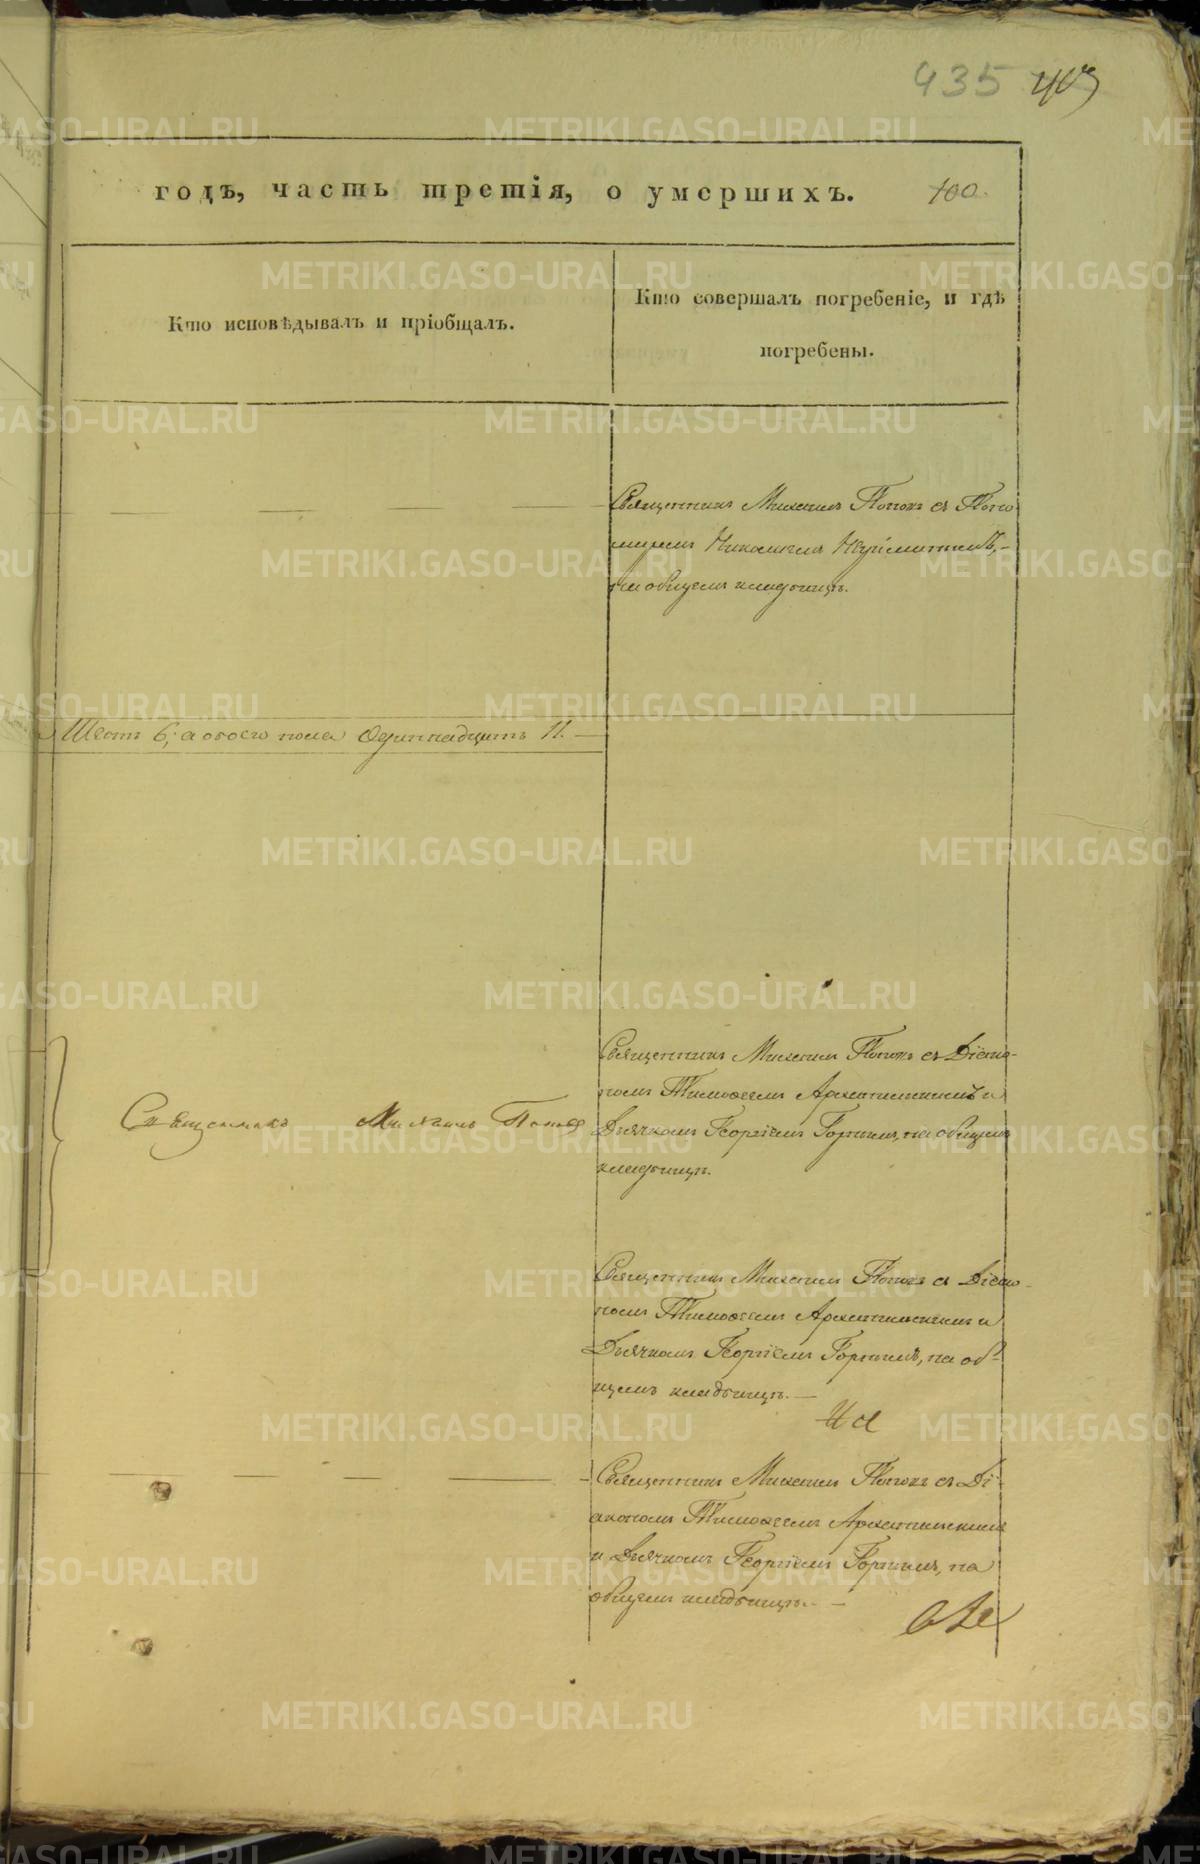 435 403
годъ, часть третія, о умершихъ. 100.
Кто исповѣдывалъ и пріобщалъ.
Кто совершалъ погребеніе, и гдѣ
погребены.
Священникъ Михаилъ Поповъ съ Поно-
маремъ Николаемъ
на общемъ кладбищѣ.
Шесть 6; а обоего пола Одиннадцать 11.
Священникъ Михаилъ Поповъ съ Діако-
номъ Тимофеемъ Архангельскимъ и
Священникъ Михаилъ Поповъ
Дьячкомъ Георгіемъ Горнымъ, на общемъ
кладбищѣ.
Священникъ Михаилъ Поповъ съ Діако-
номъ Тимофеемъ Архангельскимъ и
Дьячкомъ Георгіемъ Горнымъ, на об-
щемъ кладбищѣ. —
Священникъ Михаилъ Поповъ съ Ді-
акономъ Тимофеемъ Архангельскимъ
и Дьячкомъ Георгіемъ Горнымъ, на
общемъ кладбищѣ. —
METRIKI.GASO-URAL.RU